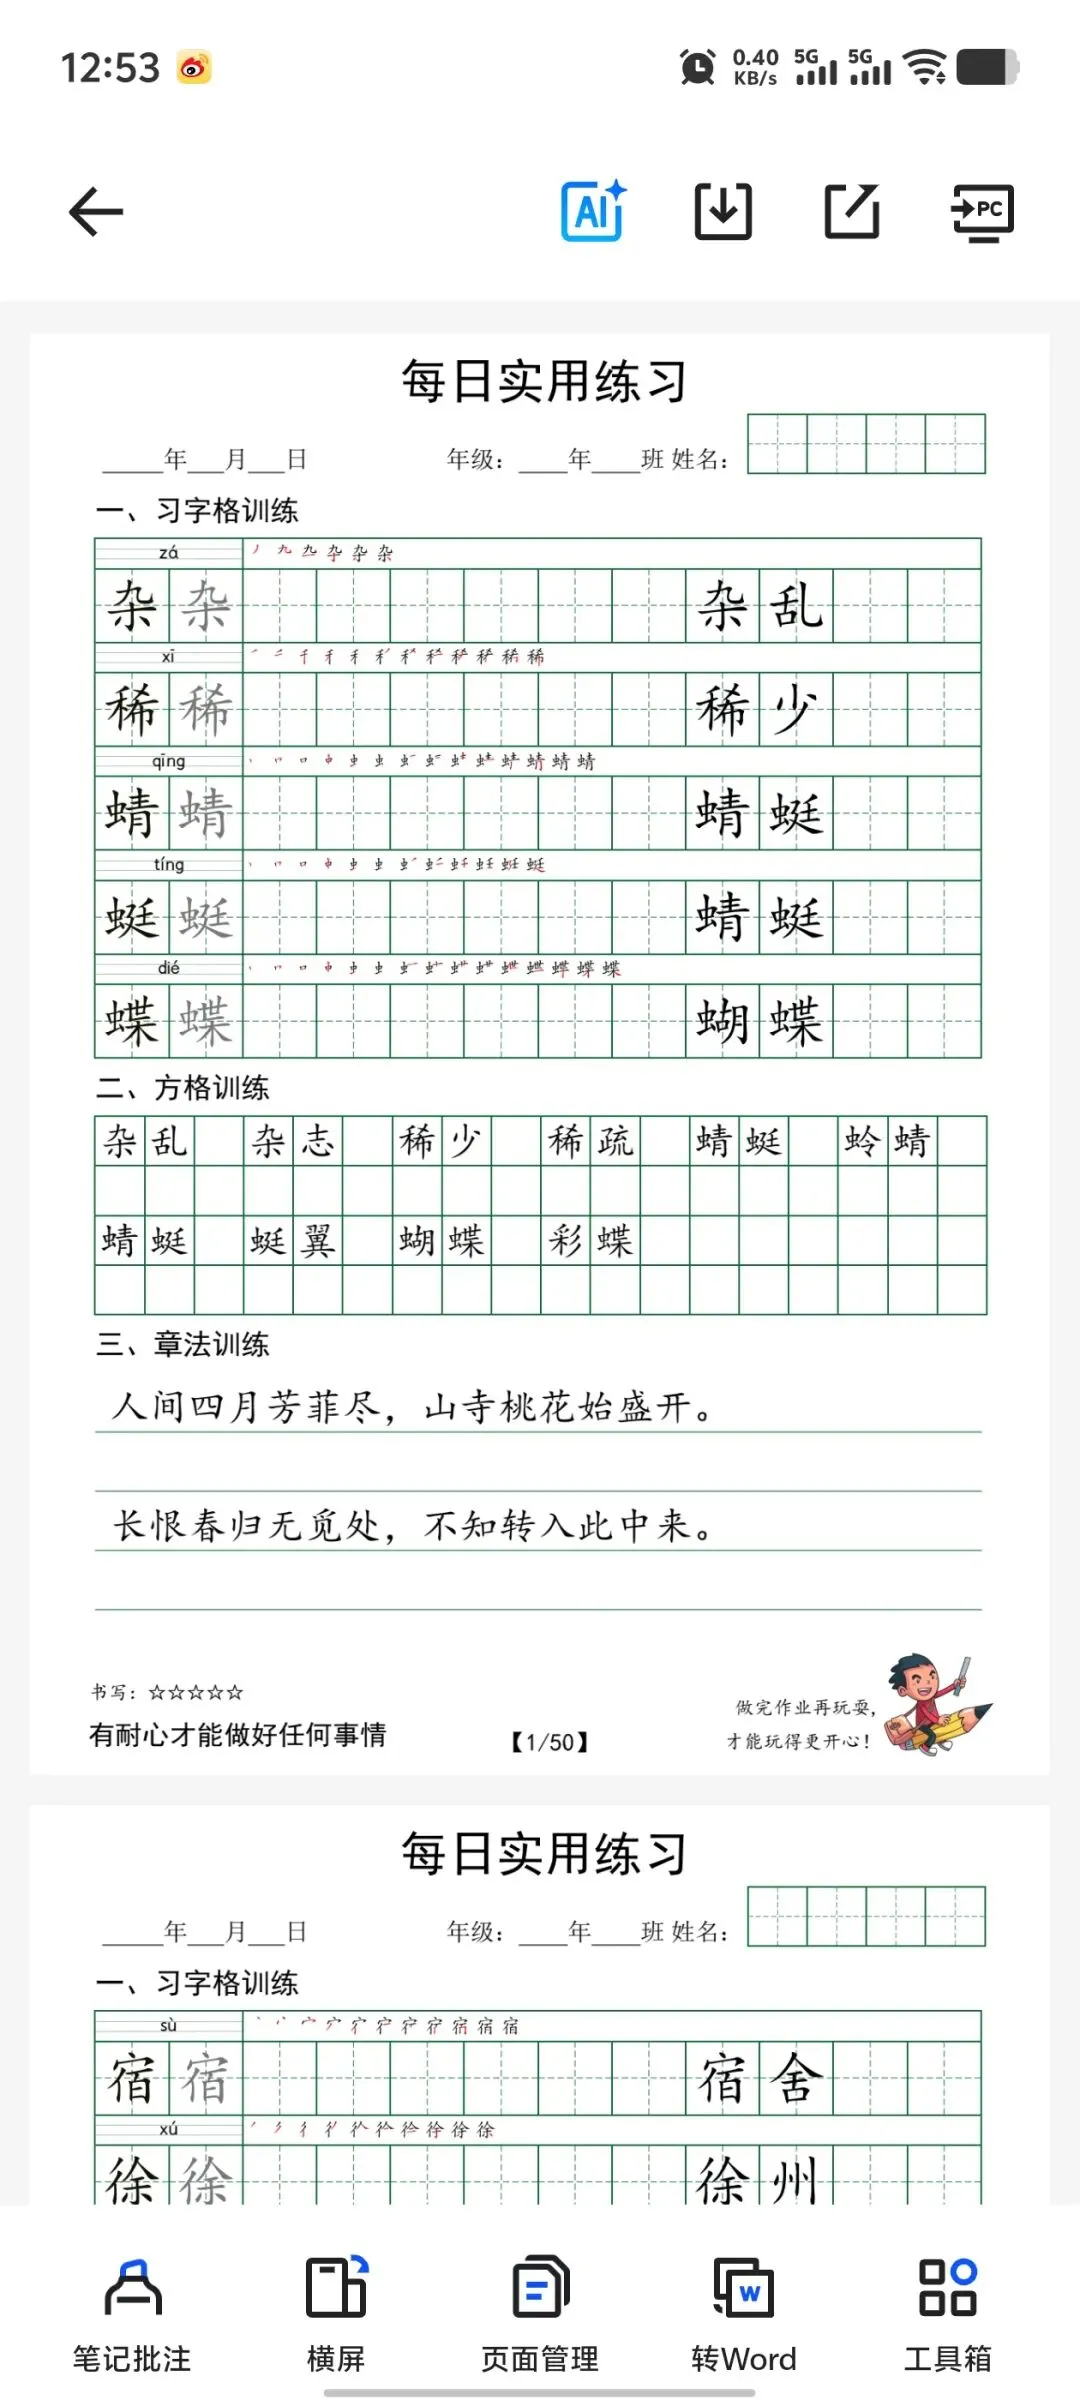 12:53 0.40 KB/s 5G 5G
AI PC
每日实用练习
_____年___月___日 年级：____年____班 姓名：
一、习字格训练
zá
杂 杂 杂 乱
xī
稀 稀 稀 少
qīng
蜻 蜻 蜻 蜓
tíng
蜓 蜓 蜻 蜓
dié
蝶 蝶 蝴 蝶
二、方格训练
杂乱 杂志 稀少 稀疏 蜻蜓 蛉蜻
蜻蜓 蜓翼 蝴蝶 彩蝶
三、章法训练
人间四月芳菲尽，山寺桃花始盛开。
长恨春归无觅处，不知转入此中来。
书写：☆☆☆☆☆
有耐心才能做好任何事情
【1/50】
做完作业再玩耍，
才能玩得更开心！
每日实用练习
_____年___月___日 年级：____年____班 姓名：
一、习字格训练
sù
宿 宿 宿 舍
xú
徐 徐 徐 州
笔记批注 横屏 页面管理 转Word 工具箱